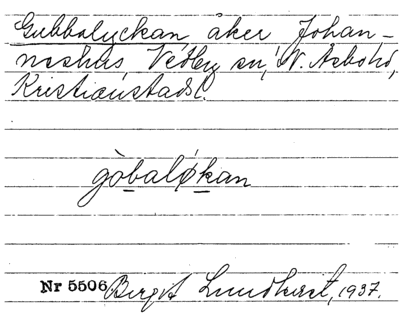 Gubbalyckan åker Johan-
neshus, Vedby sn, N. Åsbohd,
Kristianstads l.
gòbaløkan
Nr 5506 Birgit Lundkvist, 1937.